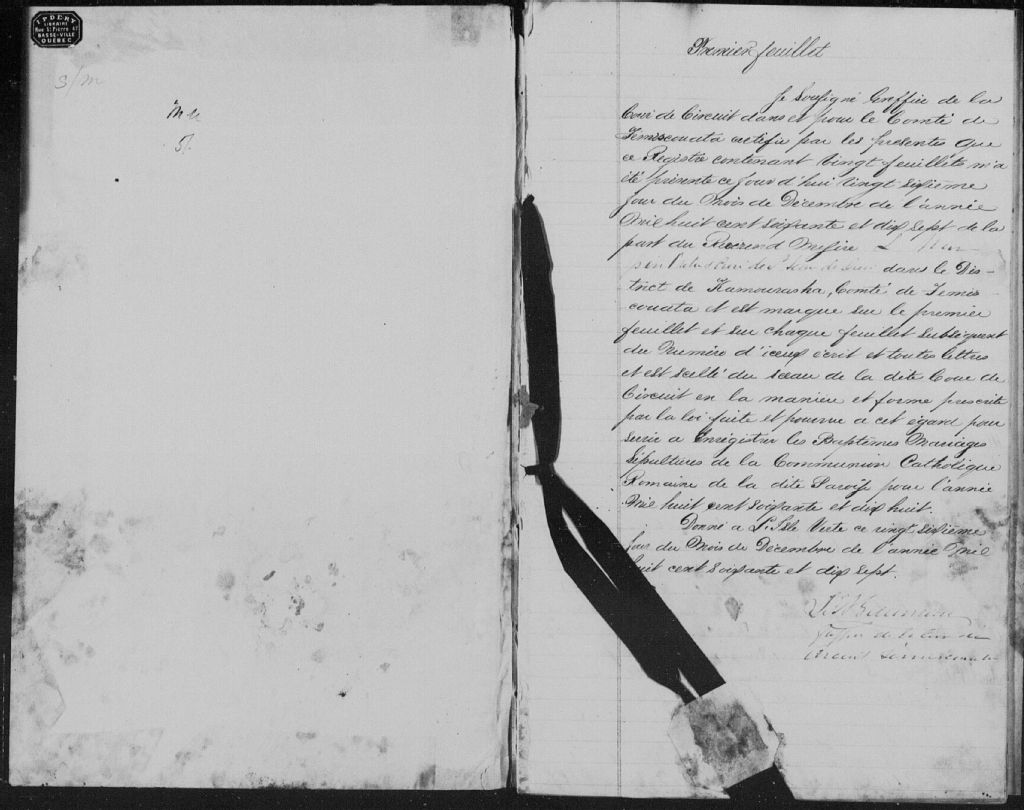 LIBRAIRE
Rue St Pierre 47
BASSE-VILLE
QUÉBEC
S/m
Premier feuillet
Je Soussigné Greffier de la
Cour de Circuit dans et pour le Comté de
Temiscouata certifie par les presentes que
ce Registre contenant vingt feuillets m'a
été présenté ce jour d'hui vingt sixième
jour du Mois de Décembre de l'année
Mil huit cent soixante et dix sept de la
part du Reverend Messire
dans le Dis-
trict de Kamouraska, Comté de Temis
couata et est marqué sur le premier
feuillet et sur chaque feuillet subséquent
du Numéro d'iceux écrit en toutes lettres
et est scellé du sceau de la dite Cour de
Circuit en la maniere et forme prescrite
par la loi faite et pourvue a cet égard pour
servir a Enrégistrer les Baptêmes Mariages
Sépultures de la Communion Catholique
Romaine de la dite Paroisse pour l'année
Mil huit cent soixante et dix huit.
Donné a L'Isle Verte ce vingt sixieme
jour du Mois de Décembre de l'année Mil
huit cent soixante et dix sept.
Greffier de la Cour de
Circuit Temiscouata